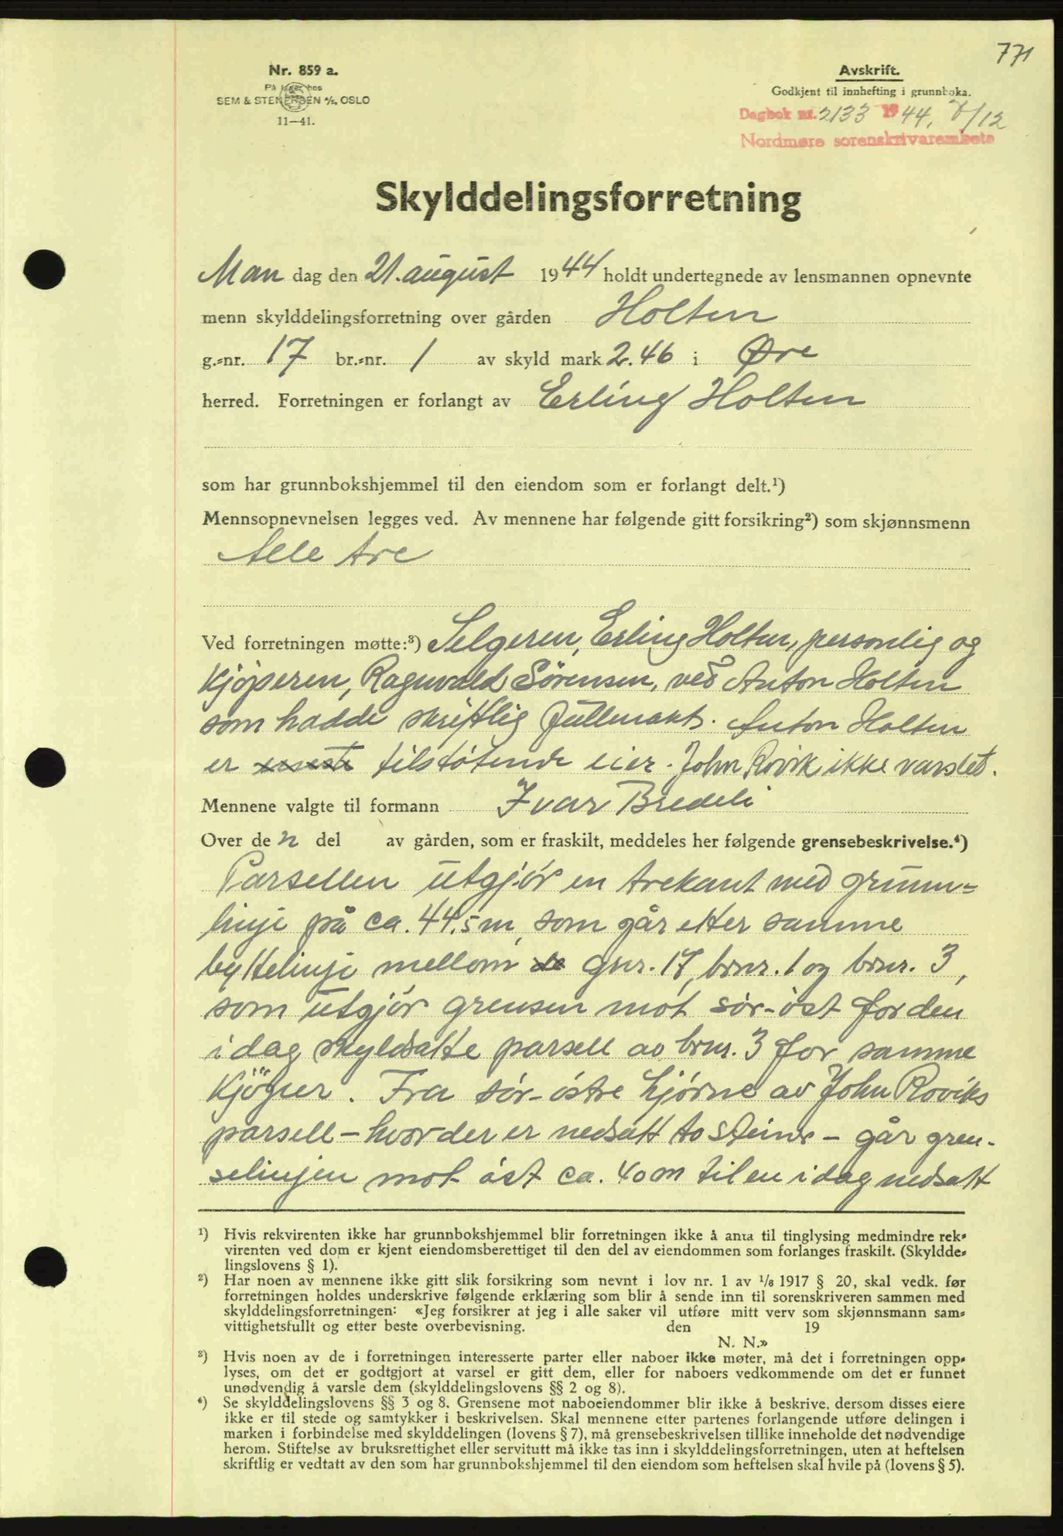 771
Nr. 859 a.
På lager hos
SEM & STENERSEN A/S, OSLO
11—41.
Avskrift.
Godkjent til innhefting i grunnboka.
Dagbok nr. 2133 1944, 7/12
Nordmøre sorenskrivarembete
Skylddelingsforretning
Man dag den 21. august 1944 holdt undertegnede av lensmannen opnevnte
menn skylddelingsforretning over gården Holten
g.-nr. 17 br.-nr. 1 av skyld mark 2.46 i Øre
herred. Forretningen er forlangt av Erling Holten
som har grunnbokshjemmel til den eiendom som er forlangt delt.¹)
Mennsopnevnelsen legges ved. Av mennene har følgende gitt forsikring²) som skjønnsmenn
Alle tre
Ved forretningen møtte:³) Selgeren, Erling Holten, personlig og
kjöperen, Ragnvald Sörensen, ved Anton Holten
som hadde skriftlig fullmakt. Anton Holten
er tilstötende eier. John Rovik ikke varslet.
Mennene valgte til formann Ivar Bredeli
Over den del av gården, som er fraskilt, meddeles her følgende grensebeskrivelse.⁴)
Parsellen utgjör en trekant med grunn=
linje på ca. 44.5 m, som går etter samme
byttelinje mellom gnr. 17, brnr. 1 og brnr. 3,
som utgjör grensen mot sör-öst for den
i dag skyldsatte parsell av brnr. 3 for samme
kjöper. Fra sör-östre hjörne av John Roviks
parsell – hvor der er nedsatt to steiner – går gren-
selinjen mot öst ca. 40 m til en i dag nedsatt
¹) Hvis rekvirenten ikke har grunnbokshjemmel blir forretningen ikke å anta til tinglysing medmindre rek-
virenten ved dom er kjent eiendomsberettiget til den del av eiendommen som forlanges fraskilt. (Skyldde-
lingslovens § 1).
²) Har noen av mennene ikke gitt slik forsikring som nevnt i lov nr. 1 av 1/8 1917 § 20, skal vedk. før
forretningen holdes underskrive følgende erklæring som blir å sende inn til sorenskriveren sammen med
skylddelingsforretningen: «Jeg forsikrer at jeg i alle saker vil utføre mitt verv som skjønnsmann sam-
vittighetsfullt og etter beste overbevisning. den 19
N. N.»
³) Hvis noen av de i forretningen interesserte parter eller naboer ikke møter, må det i forretningen opp-
lyses, om det er godtgjort at varsel er gitt dem, eller for naboers vedkommende om det er funnet
unødvendig å varsle dem (skylddelingslovens §§ 2 og 8).
⁴) Se skylddelingslovens §§ 3 og 8. Grensene mot naboeiendommer blir ikke å beskrive, dersom disses eiere
ikke er til stede og samtykker i beskrivelsen. Skal mennene etter partenes forlangende utføre delingen i
marken i forbindelse med skylddelingen (lovens § 7), må grensebeskrivelsen tillike inneholde det nødvendige
herom. Stiftelse av bruksrettighet eller servitutt må ikke tas inn i skylddelingsforretningen, uten at heftelsen
skriftlig er vedtatt av den som har grunnbokshjemmel til den eiendom som heftelsen skal hvile på (lovens § 5).